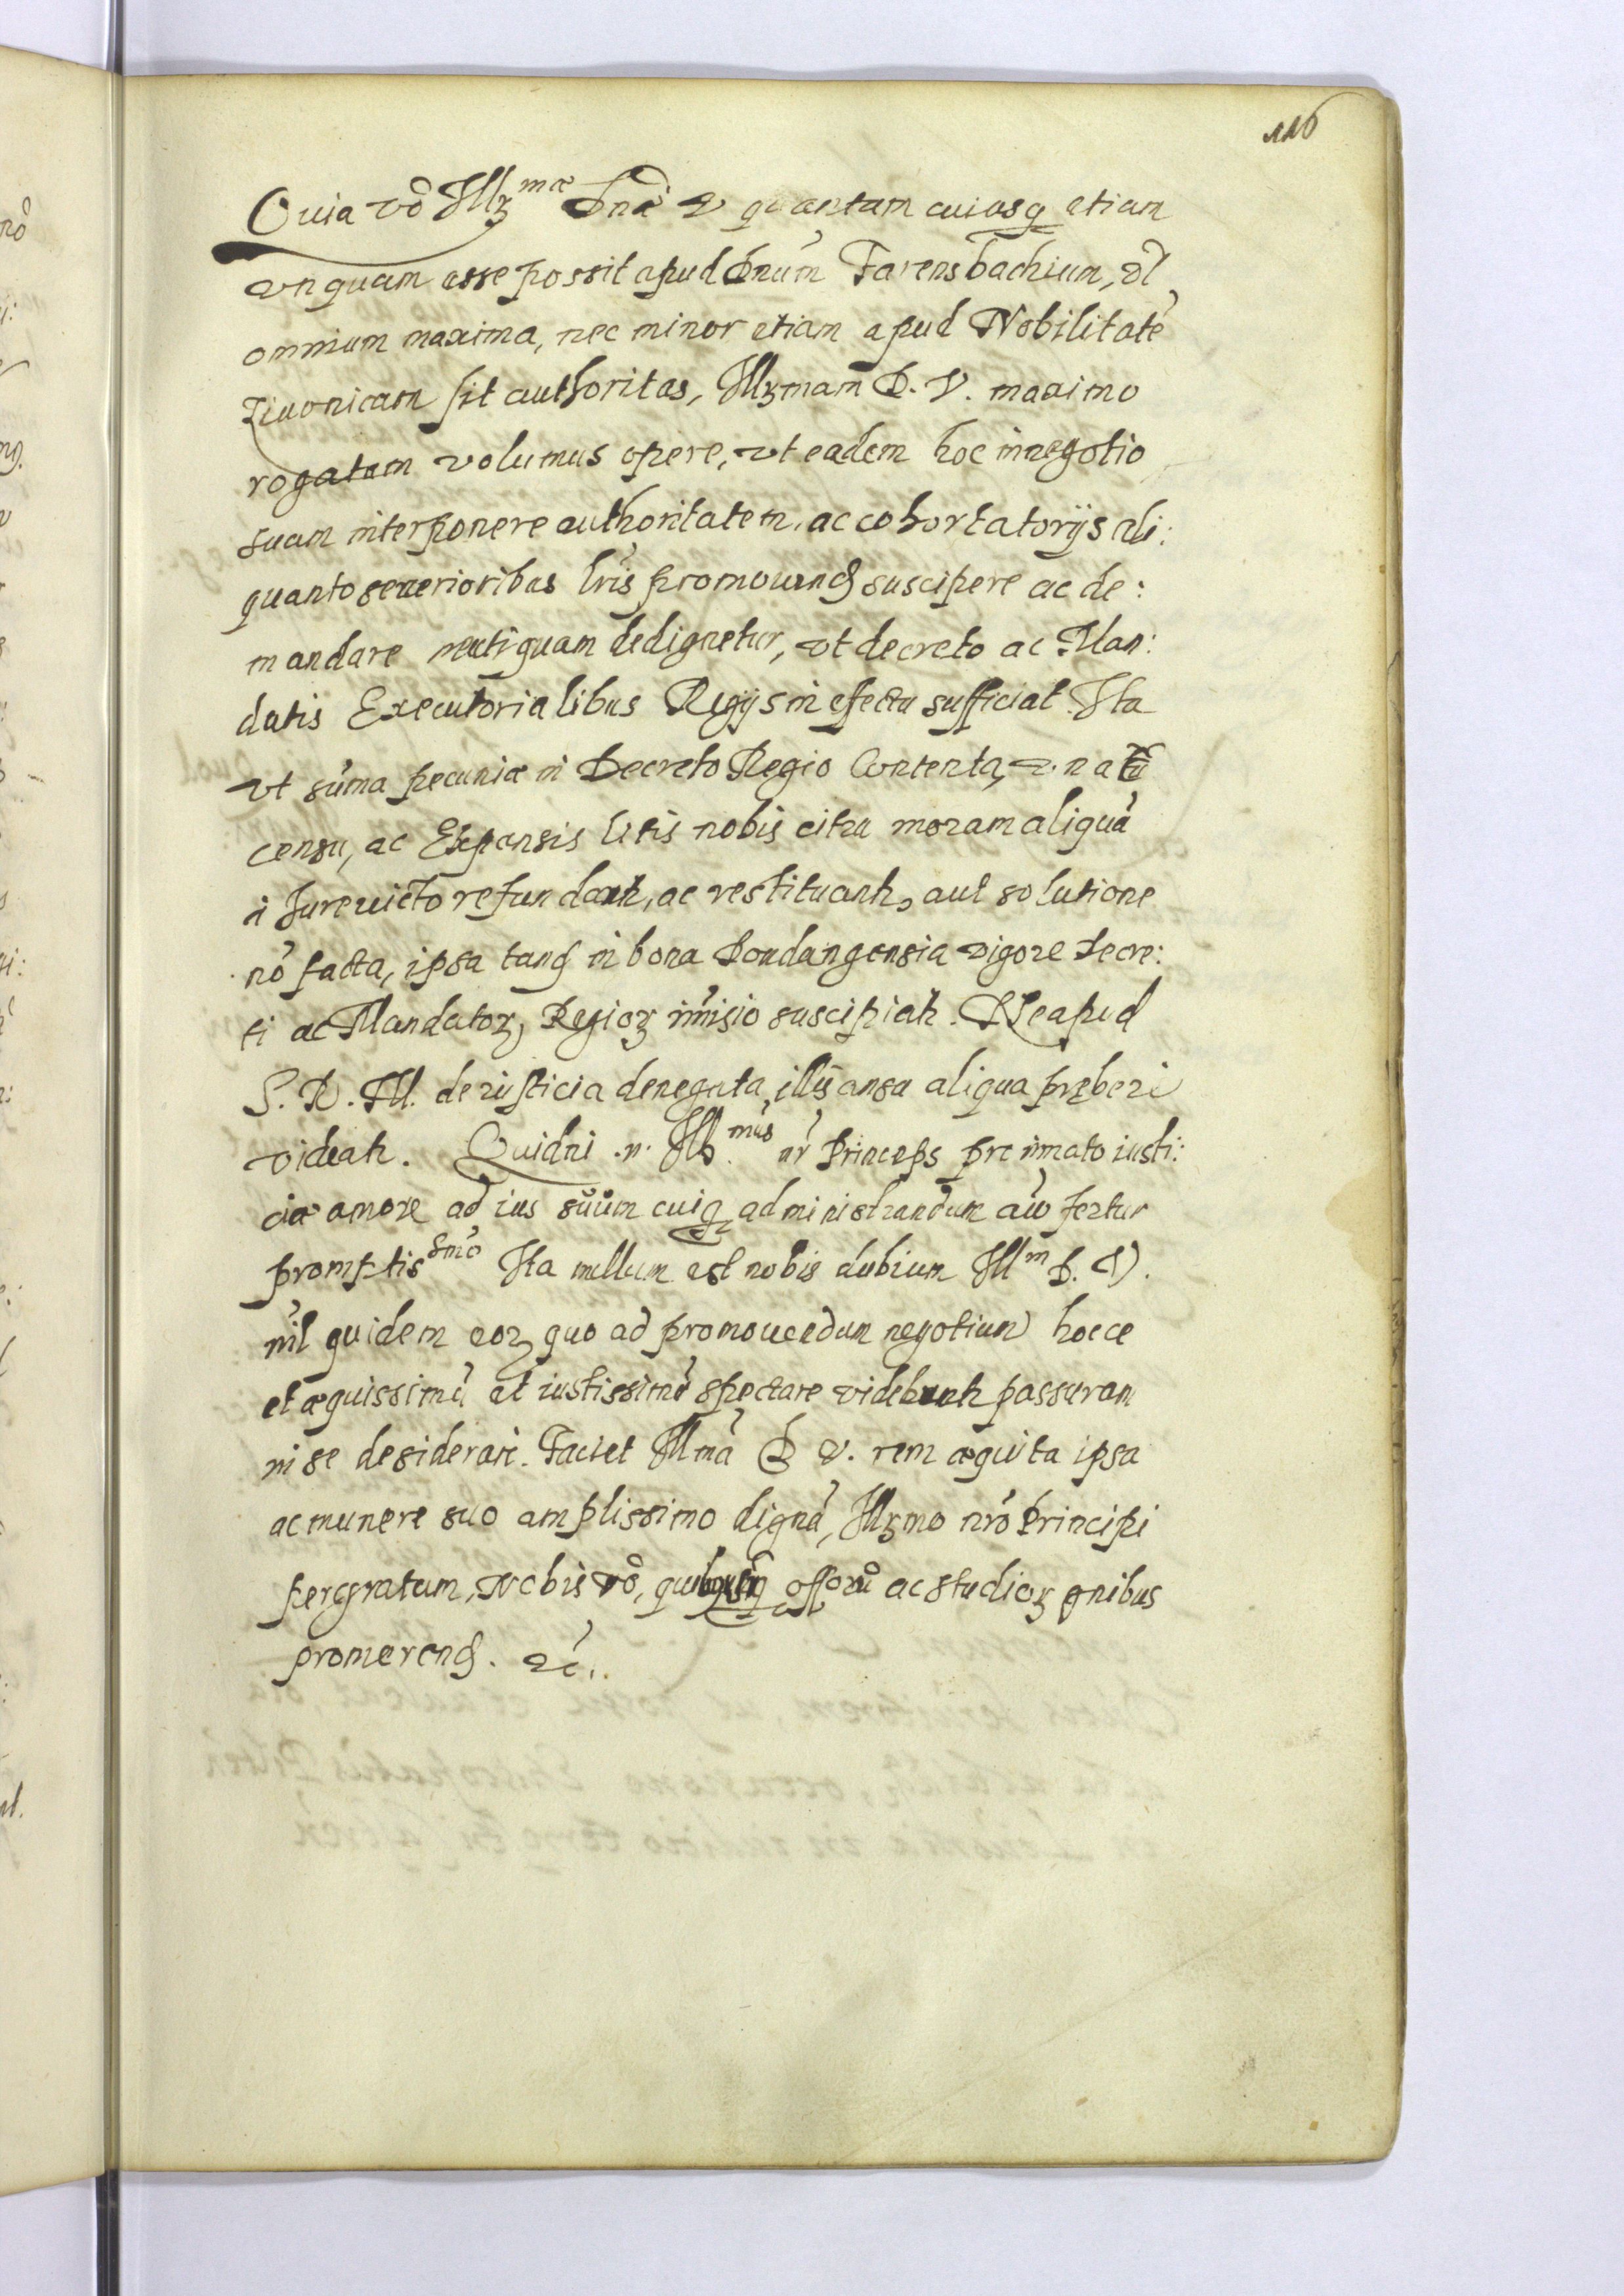 116
Quia vo Illzmæ Dnã V quantam cuiusq etiam
vnquam esse possit apud Dnum Farensbachium, vl
omnium maxima, nec minor etiam apud Nobilitatē
Liuonicam sit authoritas, Illzmam D. V. maximo
rogatam volumus opere, vt eadem hoc in negotio
suam interponere authoritatem, ac cohortatorijs ali:
quanto seuerioribus lris promouend suscipere ac de:
mandare neutiquam dedignetur, vt decreto ac Man:
datis Executorialibus Regijs in efectu sufficiat. Ita
vt sūma pecuniæ in Decreto Regio Contenta, vna cū
censu, ac Expensis litis nobis citra moram aliquā
à Jureuicto refundantr, ac restituantr, aut solutione
nō facta, ipsa tand in bona Dondangensia vigore Decre:
ti ac Mandatoz, Regioz īmisio suscipiatr. Ne apud
S. R. M. de iusticia denegata, illis ansa aliqua præberi
videatr. Quidni .n. Illz.mus nr Princeps pre innato iusti:
ciæ amore ad ius suum cuiq administrandum aīo fertur
promptissmo Ita nullum est nobis dubium Illm D. V.
nil quidem eoz, quo ad promouendum negotium hocce
et æquissimū et iustissimū spectare videbuntr passuram
in se desiderari. Faciet Illmā D V. rem æquita ipsa
ac munere suo amplissimo dignā, Illzmo nro Principi
pergratam, Nobis vo, offorū ac studioz gnibus
promerend. &c.